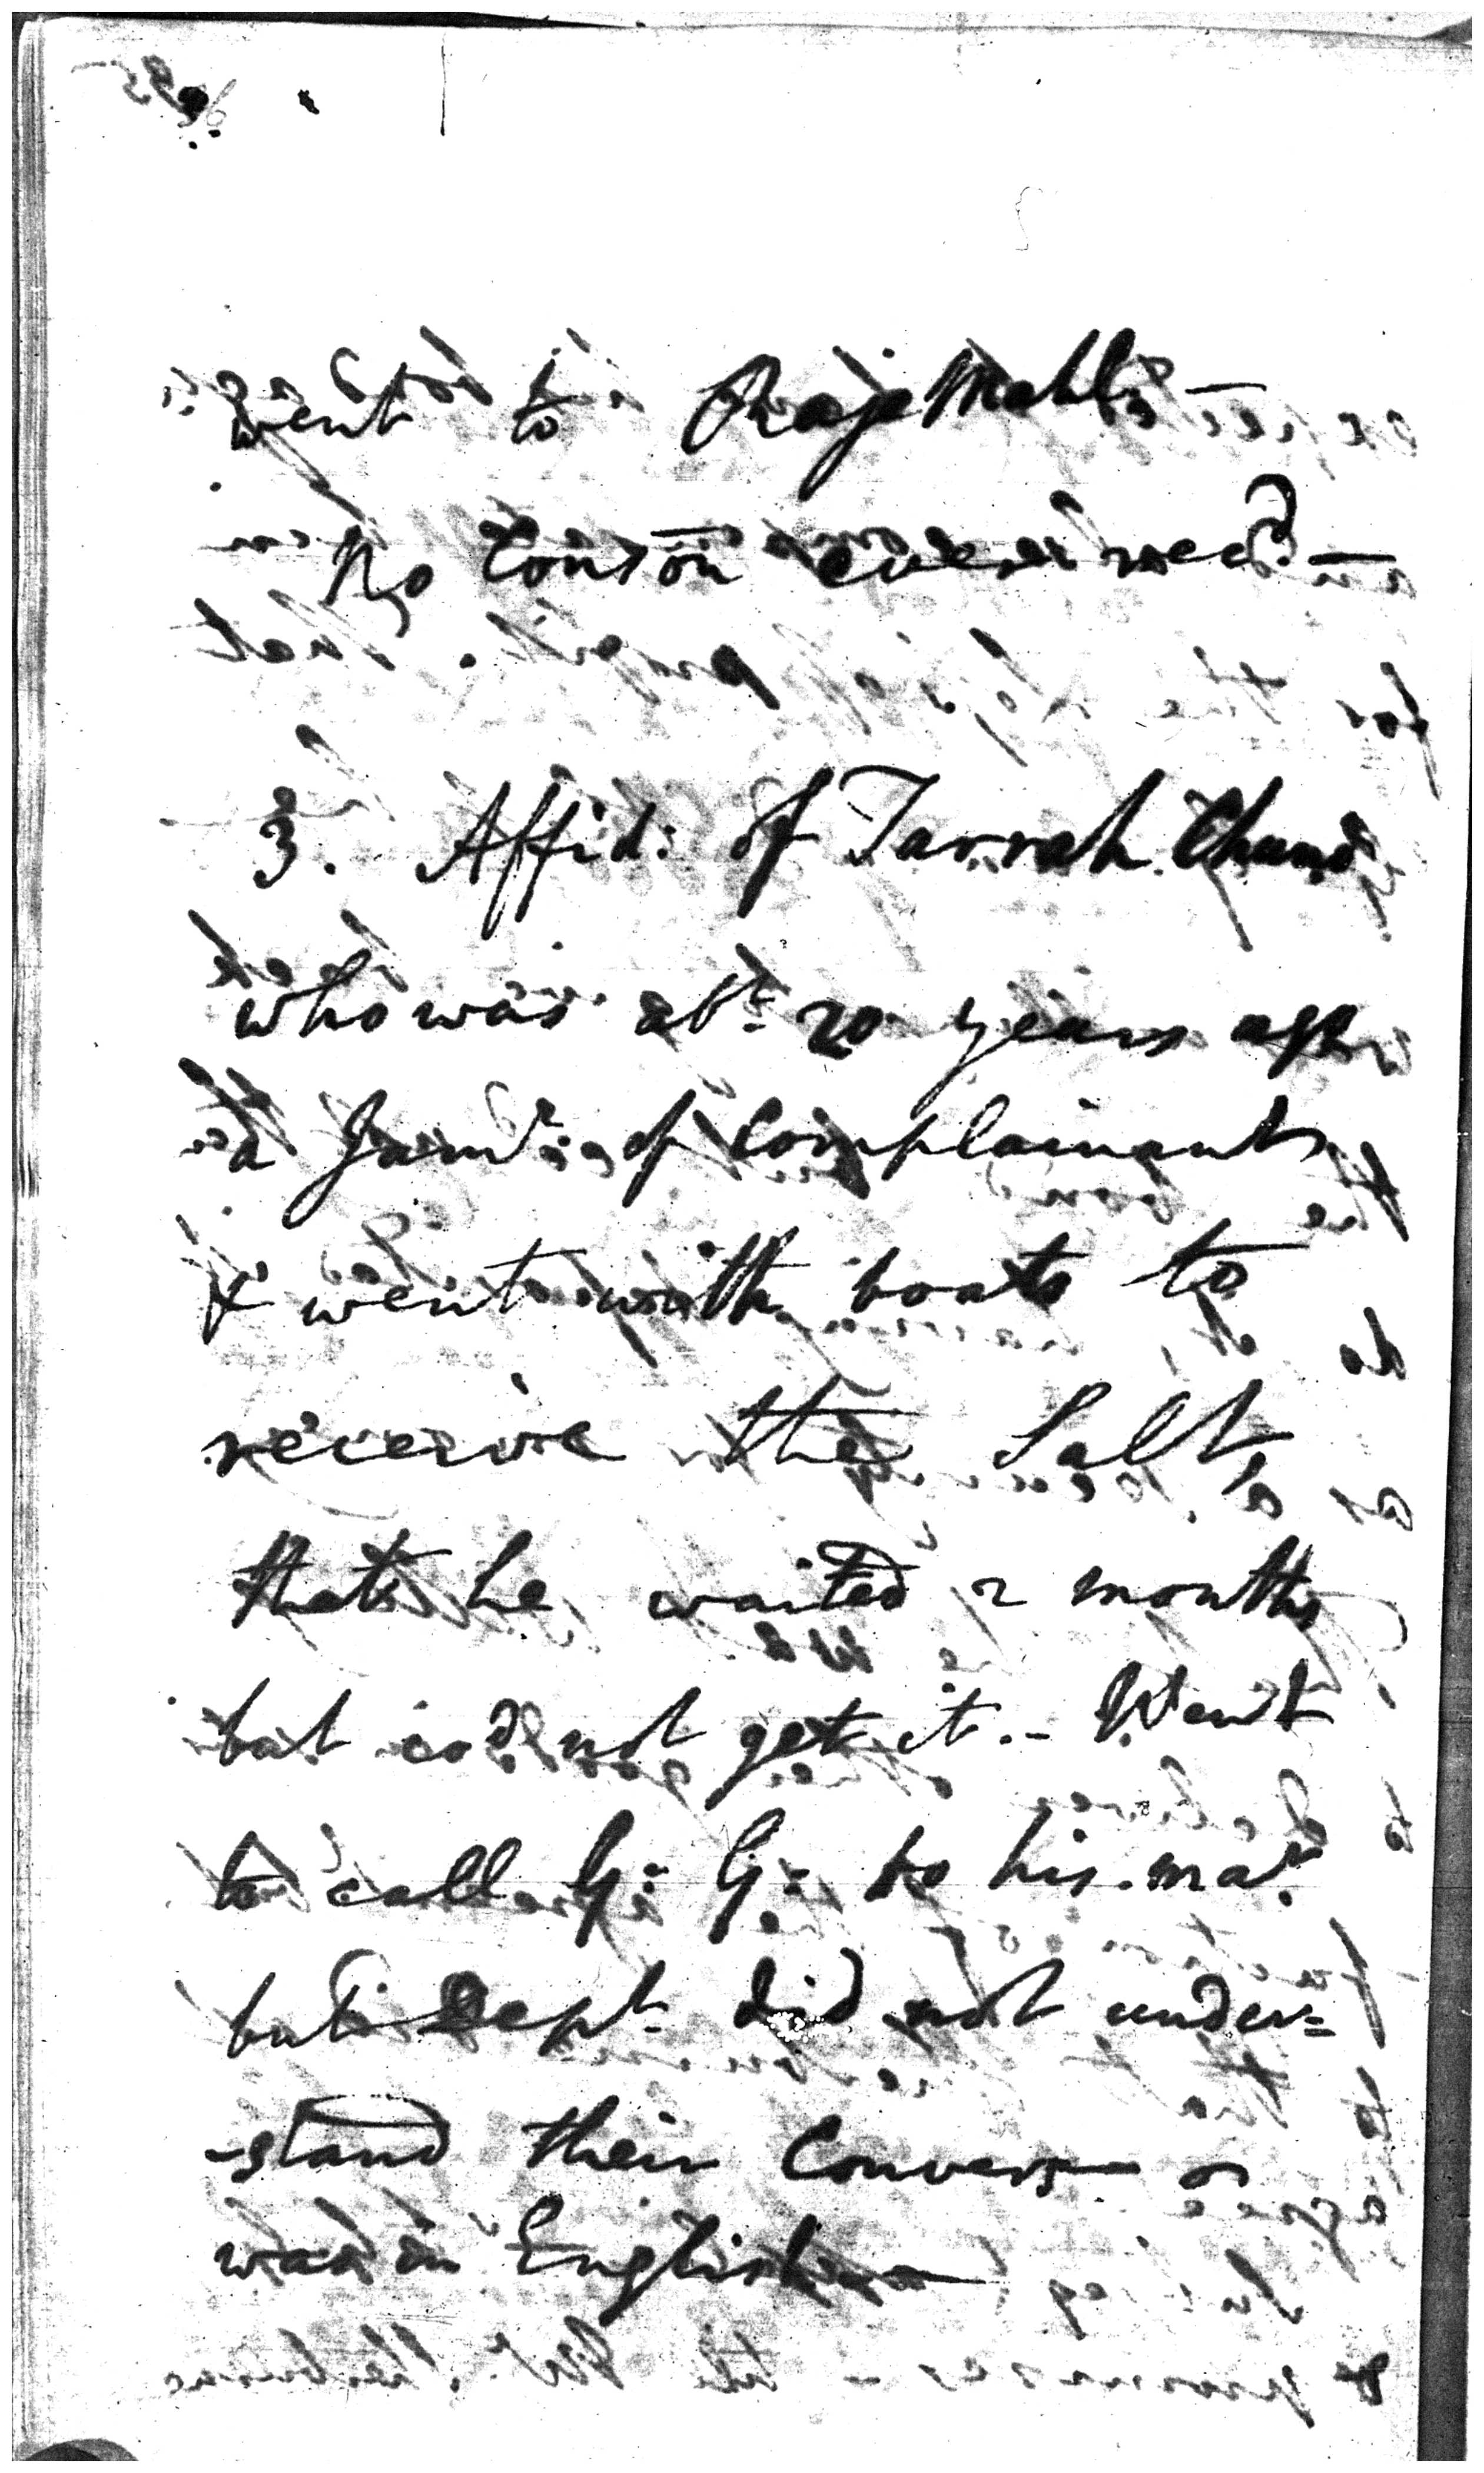 went to Raje Mahl –
No Conson ever recd. –
3. Affid: of Tarrah Chund
who was abt. 20 years ago
a Servt. of Complainants
& went with boats to
receive the Salt
that he waited 2 months
but cod. not get it. – Went
to call G: G: to his mar.
but Dept. did not under=
-stand their Convers– as
was in English –